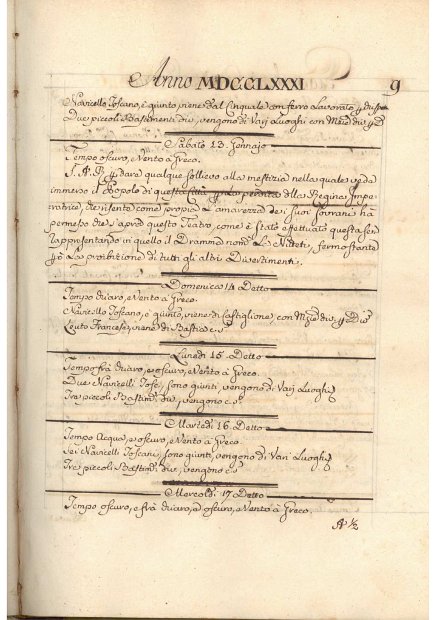 Anno MDCCLXXXI 9
Navicello Toscano, è giunto viene dal Cinquale con ferro Lavorato
Due piccoli Bastimenti div., vengono da Varj Luoghi con Mzie div.
Sabato 13. Gennajo
Tempo oscuro, e Vento à Greco.
S. A. R. dare qualche sollievo alla mestizia nella quale vede
immerso il Popolo di questa Città La perdita della Regina Impe-
ratrice, che risente come propria L'amarezza de' suoi Sovrani ha
permesso che s'apra questo Teatro, come è stato effettuato questa sera
rappresentando in quello il Dramma nom. La Nitteti, fermo stante
La proibizione di tutti gli altri Divertimenti.
Domenica 14 Detto
Tempo chiaro, e Vento à Greco.
Navicello Toscano, è giunto, viene da Castiglione, con Mzie div.
Leuto Francese, viene da Bastia e. s.
Lunedì 15. Detto
Tempo frà chiaro, e oscuro, e Vento à Greco.
Due Navicelli Tosc., sono giunti, vengono da Varj Luoghi
Tre piccoli Bastim. div., vengono e. s.
Martedì 16. Detto
Tempo Acqua, e oscuro, e Vento à Greco.
Sei Navicelli Toscani, sono giunti, vengono da Vari Luoghi
Tre piccoli Bastim. div., vengono e. s.
Mercoldì 17. Detto
Tempo oscuro, e frà chiaro, e oscuro, e Vento à Greco.